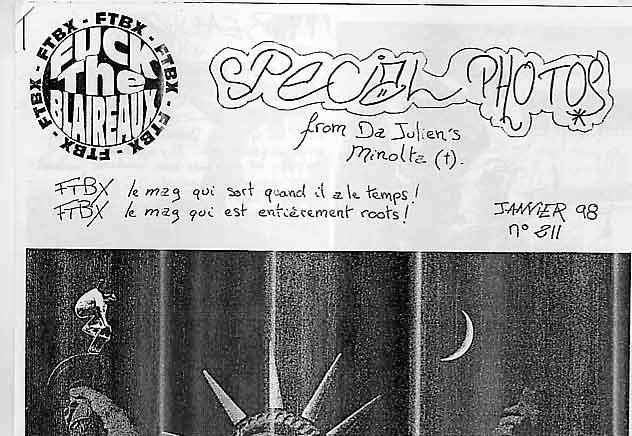 FTBX - FTBX - FTBX - FTBX - FTBX - FTBX -
FUCK
The
BLAIREAUX
SPECIAL PHOTOS
from Da Julien's
Minolta (†).
FTBX le mag qui sort quand il a le temps!
FTBX le mag qui est entièrement roots!
JANVIER 98
n° 811